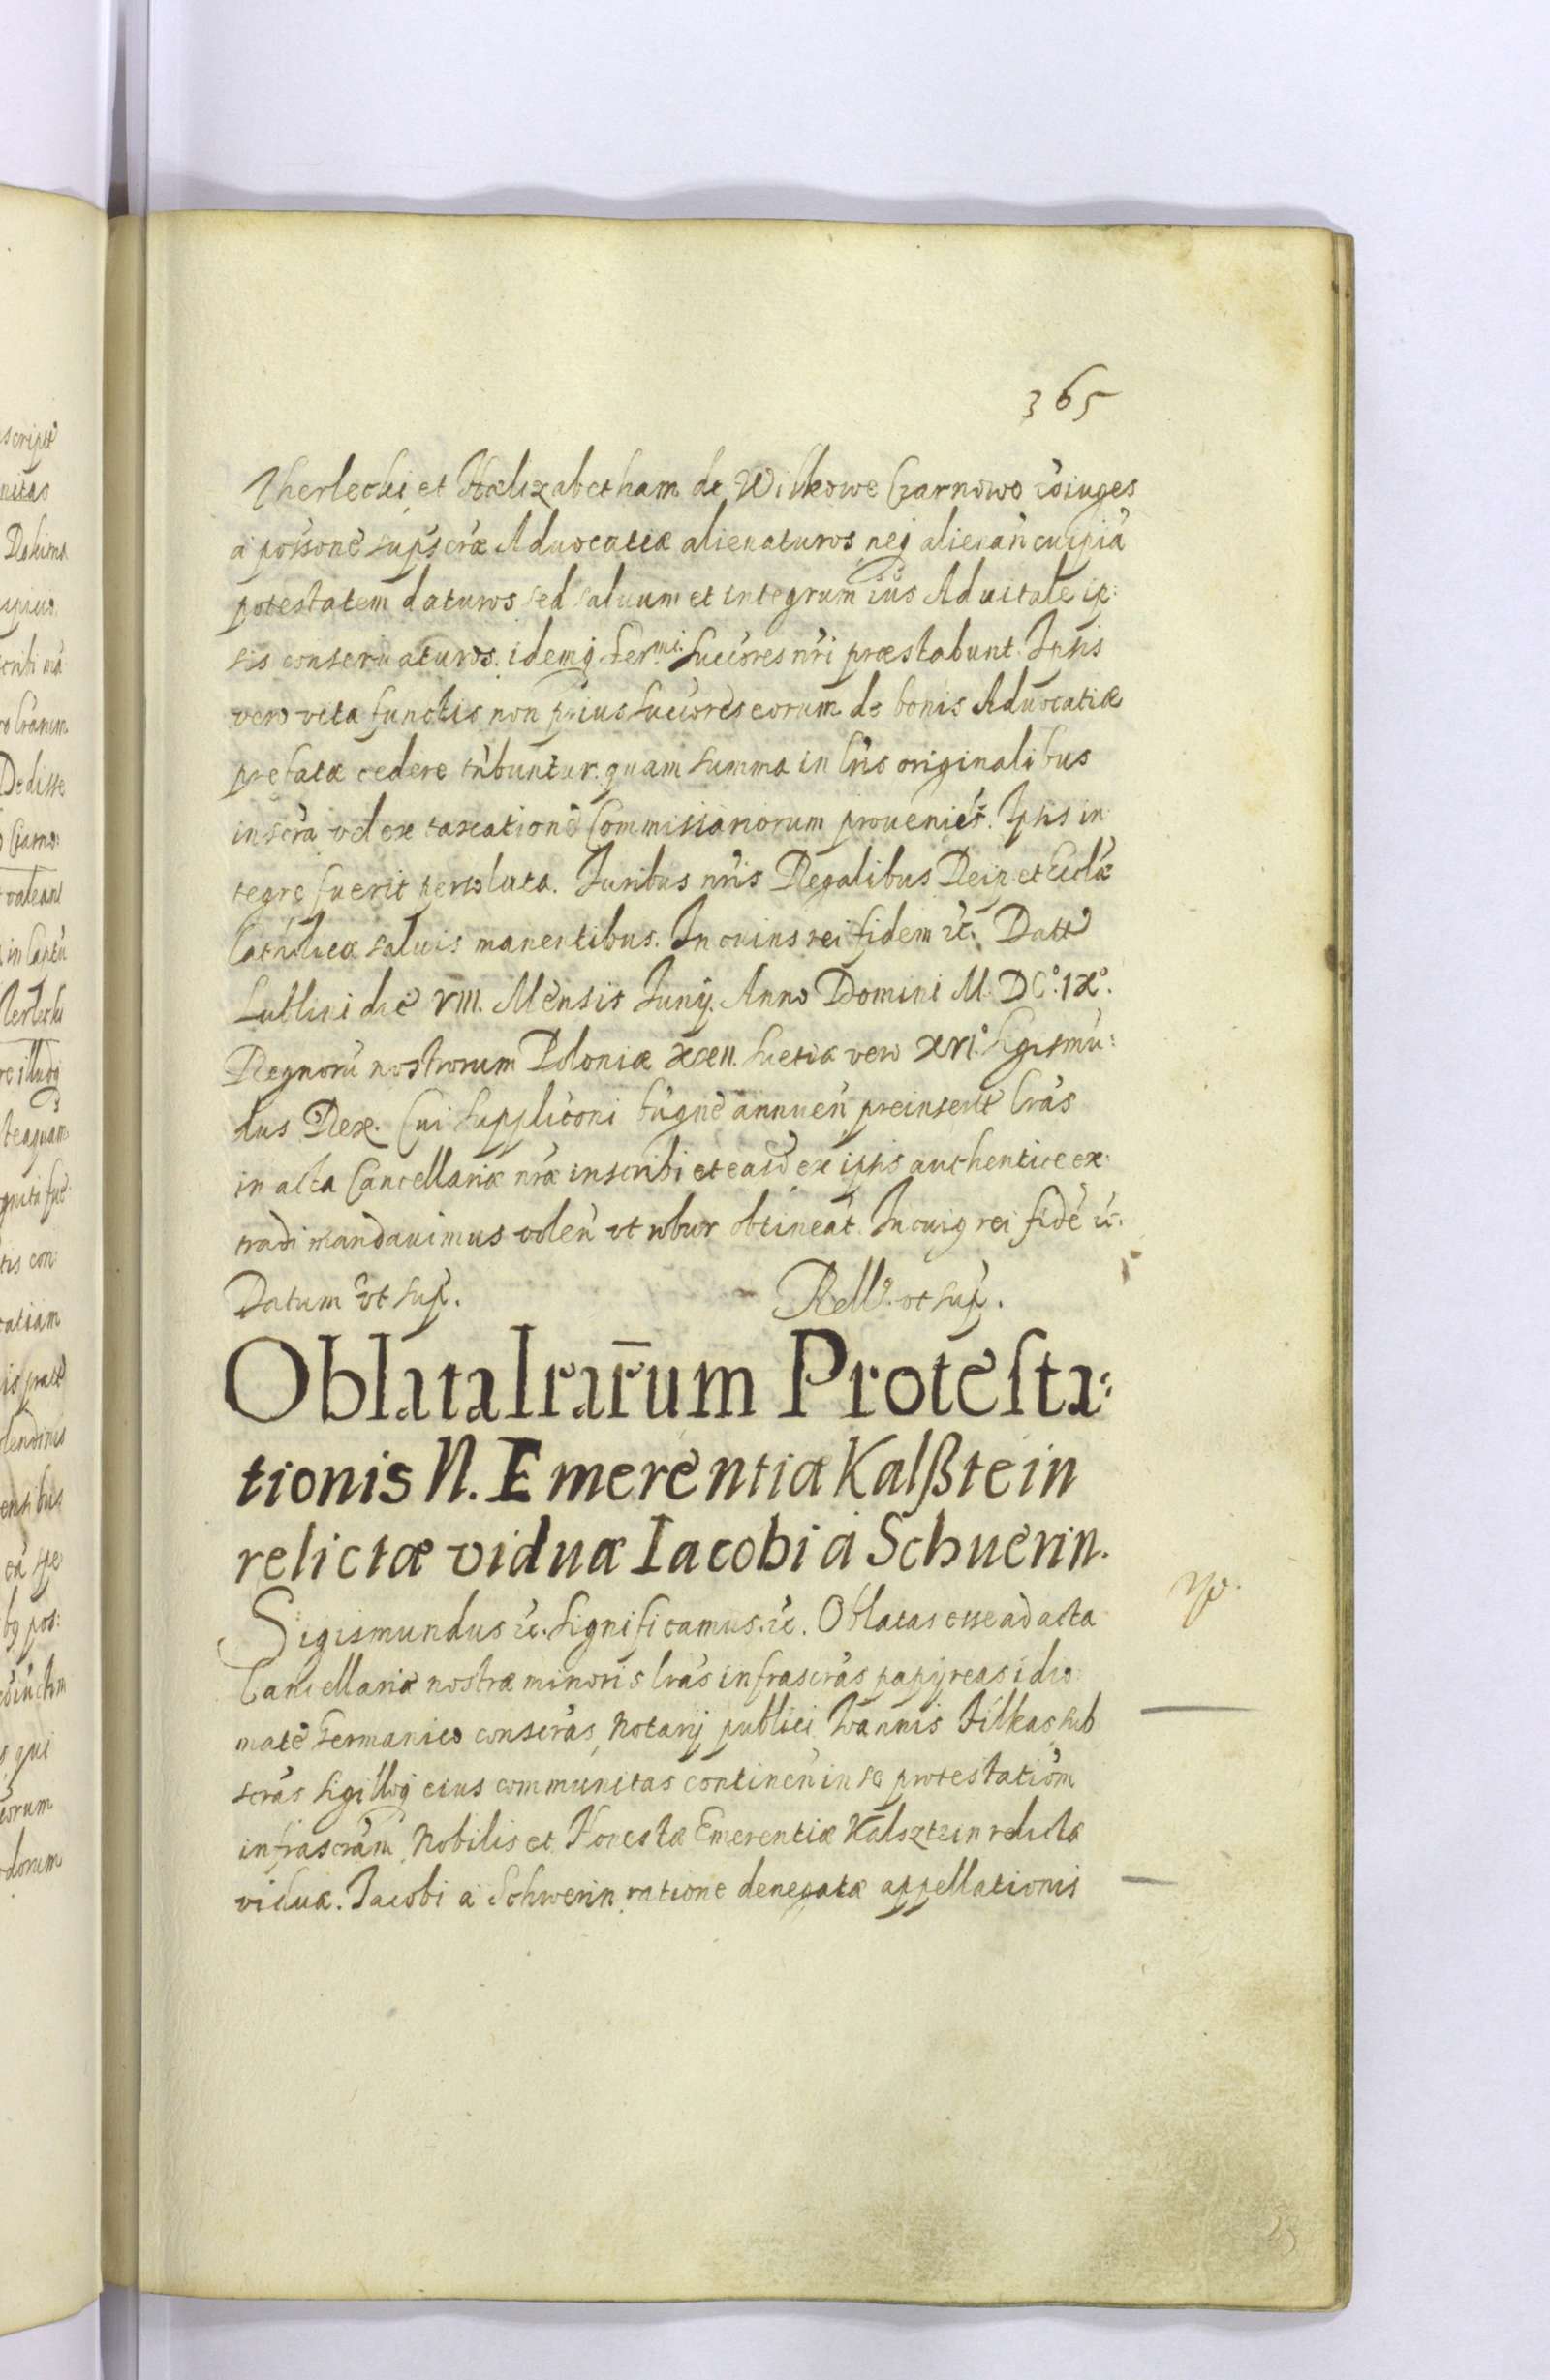 365
Therlecki et Haelizabetham de Witkowe Czarnowo coiuges
a possone supscrae Aduocatiae alienaturos neq alienan cuipiã
potestatem daturos sed saluum et integrum ius Aduitale ip:
sis conseruaturos. idemq Ser.mi Succores nri praestabunt. Ipsis
vero vita functis non prius Succores eorum de bonis Aduocatiae
prefatae cedere tnbuntur. quam summa in lris originalibus
inscra vel ex taxatione Commissariorum proueniẽs. Ipsis in
tegre fuerit persoluta. Iuribus nris Regalibus Reip. et Ecclae
Catholicae saluis manentibus. In cuius rei fidem etc. Datt
Lublini die VIII. Mensis Iunij. Anno Domini M. DC.° IX°.
Regnorũ nostrorum Poloniae XXII. Suetiae vero XVI.° Sigismu:
dus Rex. Cui suppliconi bñgne annuen preinsert lras
in acta Cancellariae nrae inscribi et easd ex ipsis authentice ex:
tradi mandauimus volen vt robur obtineat. In cuiq rei fidẽ etc.
Datum vt sup. Rello. vt sup.
Oblata lrarum Protesta:
tionis N. Emerentiae Kalßtein
relictae viduae Iacobi a Schuerin.
Sigismundus etc. Significamus. etc. Oblatas esse ad acta
Cancellariae nostrae minoris lras infrascras papyreas idio:
mate Germanico conscras, Notarij publici Ioannis Filkas sub
scras Sigilloq eius communitas continen in se protestationem
infrascram, Nobilis et Honestae Emerentiae Kalsztein relictae
viduae. Iacobi a Schwerin ratione denegatae appellationis